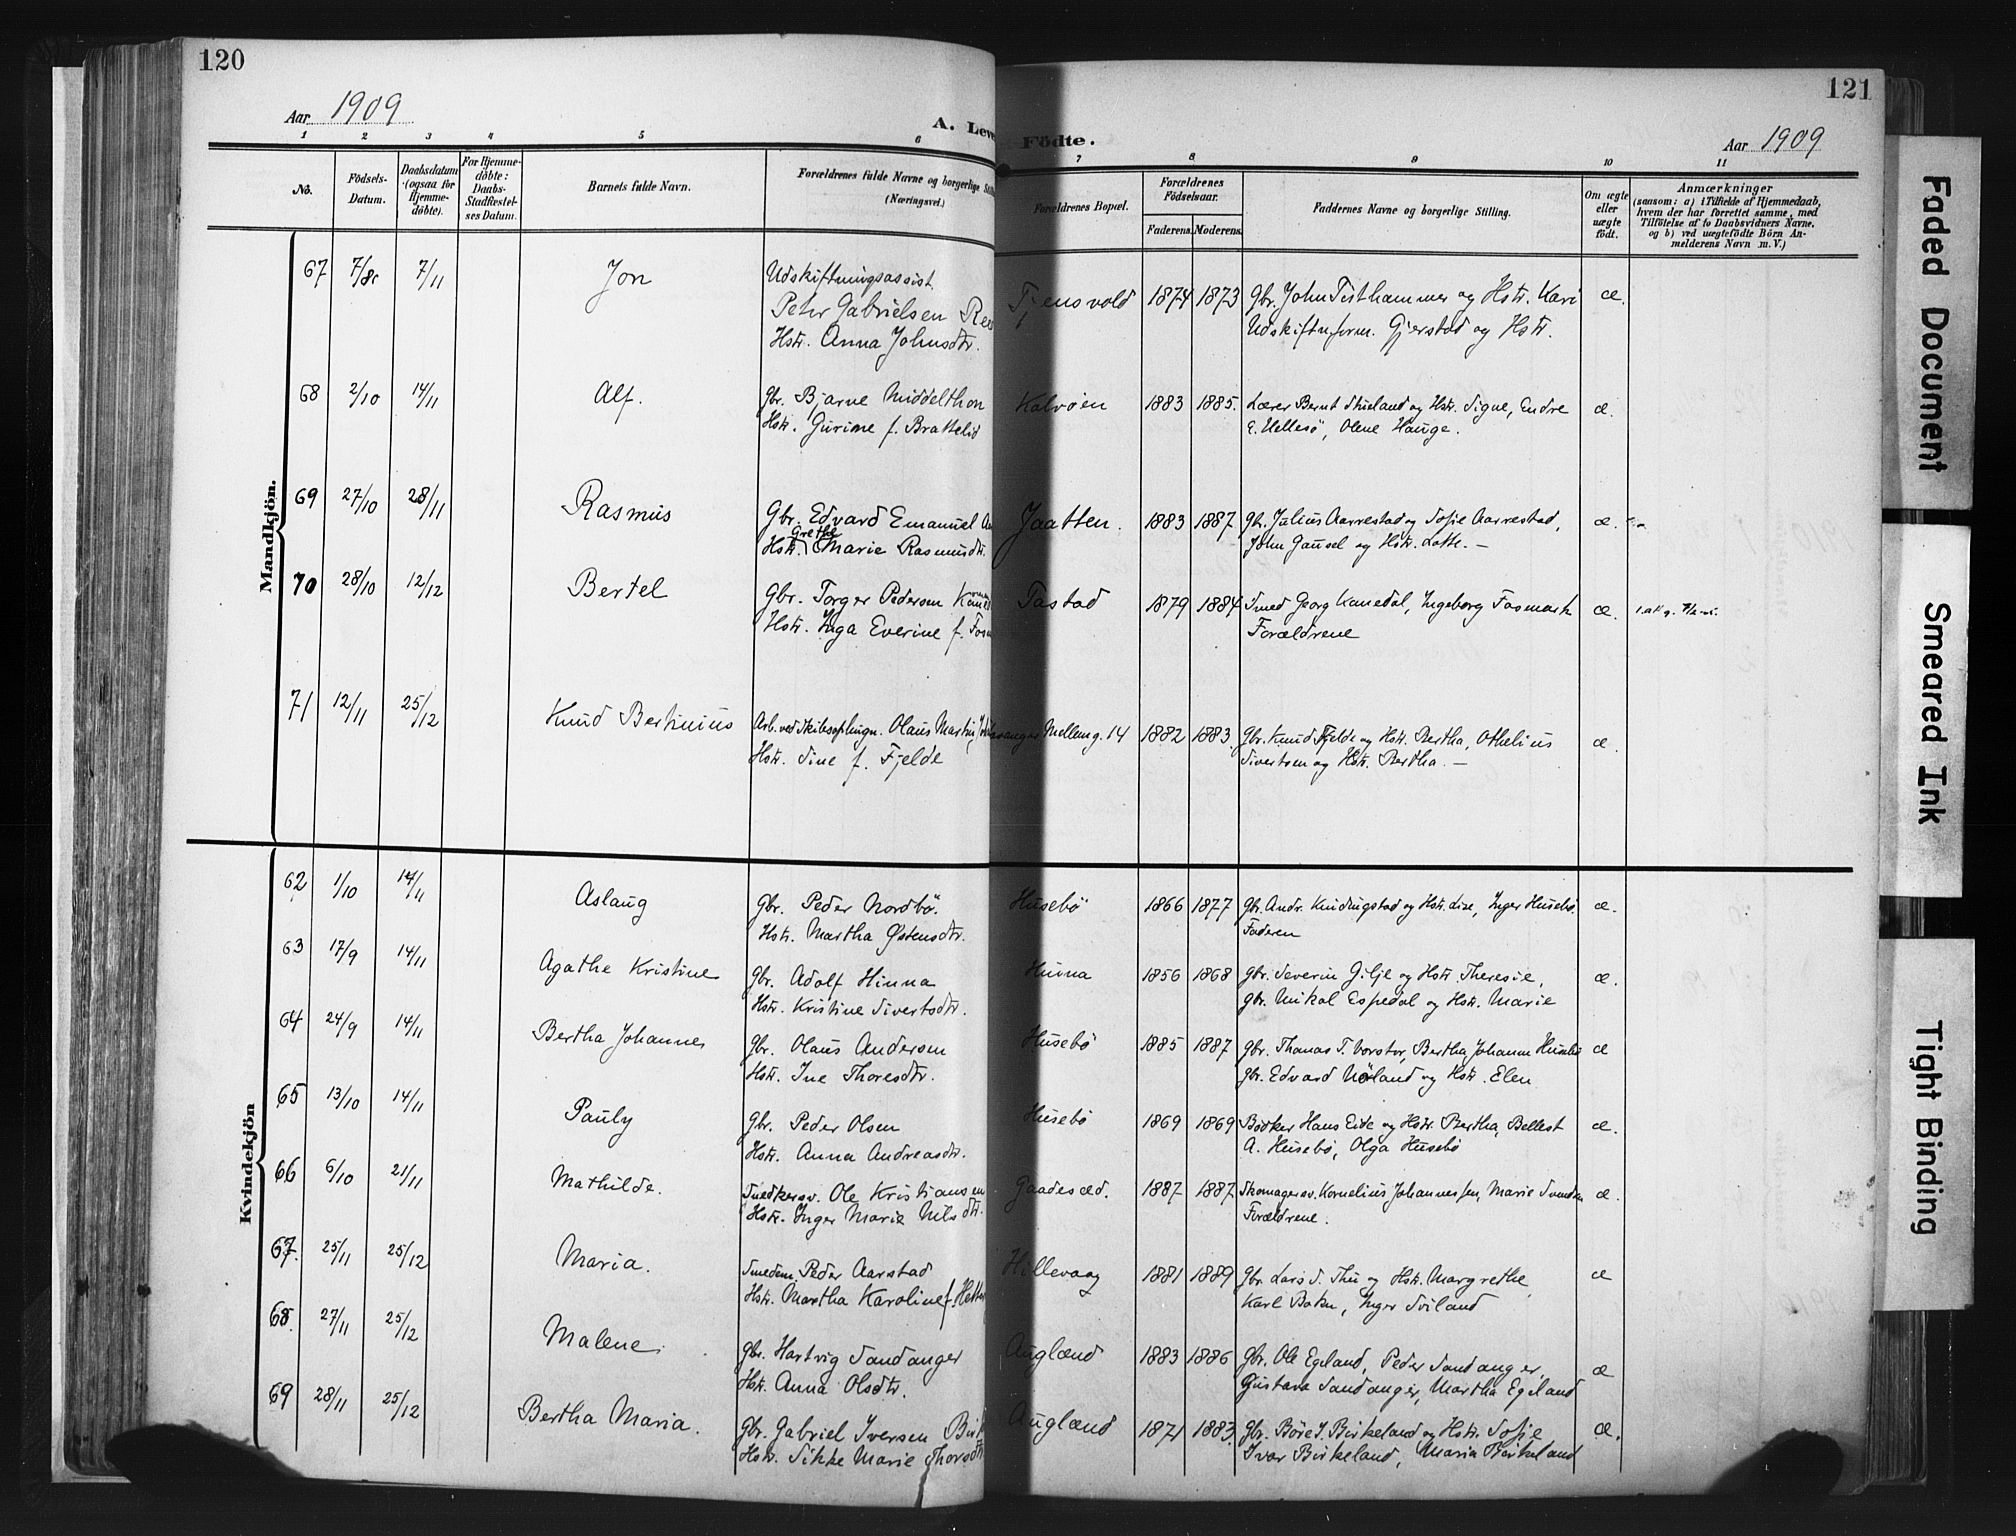 120
Aar 1909
A. Leve
1 2 3 4 5 6
No.
Födsels-Datum.
Daabsdatum (ogsaa for Hjemmedöbte).
For Hjemmedöbte: Daabs-Stadfæstelses Datum.
Barnets fulde Navn.
Forældrenes fulde Navne og borgerlige Still
(Næringsvei.)
Mandkjön.
67 7/8 7/11 Jon Udskiftningsassist.
Peter Gabrielsen
Hstr. Anna Johnsdtr.
68 2/10 14/11 Alf. Gbr. Bjarne Middelthon
Hstr. Gurine f. Brattelid
69 27/10 28/11 Rasmus Gbr. Edvard Emanuel
Grethe
Hstr. Marie Rasmusdtr.
70 28/10 12/12 Bertel Gbr. Torger Pedersen
Hstr. Inga Everine f.
71 12/11 25/12 Knud Bertinius Arb. ved Olaus Martin
Hstr. Sine f. Fjelde
Kvindekjön
62 1/10 14/11 Aslaug Gbr. Peder Nordbö.
Hstr. Martha Østensdtr.
63 17/9 14/11 Agathe Kristine Gbr. Adolf Hinna
Hstr. Kristine Sivertsdtr.
64 24/9 14/11 Bertha Johanne Gbr. Olaus Andersen
Hstr. Ine Thoresdtr.
65 13/10 14/11 Pauly Gbr. Peder Olsen
Hstr. Anna Andreasdtr.
66 6/10 21/11 Mathilde. Snedkersv. Ole Kristiansen
Hstr. Inger Marie Nilsdtr.
67. 25/11 25/12 Maria. Smedem. Peder Aarstad
Hstr. Martha Karoline f.
68. 27/11 25/12 Malene Gbr. Hartvig Sandanger
Hstr. Anna Olsdtr.
69 28/11 25/12 Bertha Maria. Gbr. Gabriel Iversen
Hstr. Sikke Marie
121
Födte.
Aar 1909
7 8 9 10 11
Forældrenes Bopæl.
Forældrenes Födselsaar.
Faderens. Moderens.
Faddernes Navne og borgerlige Stilling.
Om ægte eller uægte födt.
Anmærkninger
(saasom: a) i Tilfælde af Hjemmedaab,
hvem der har forrettet samme, med
Tilföielse af to Daabsvidners Navne,
og b) ved uægtefödte Börn Anmelderens Navn m. V.)
Tjensvold 1874 1873 Gbr. John Tisthammer og Hstr. Kari æ.
Udskiftn.form. Gjerstad og Hstr.
Kalvøen 1883 1885. Lærer Bernt og Hstr. Signe, Endre æ.
E. Hellesö, Olene Hauge.
Jaatten. 1883 1887 gbr. Julius Aarrestad og Sofie Aarrestad, æ.
John Gausel og Hstr. Lotte. —
Tastad 1879 1884 Smed Georg Kanedal, Ingeborg Fosmark æ.
Forældrene
Mellemg. 14 1882 1883. Gbr. Knud Fjelde og Hstr. Bertha, Othelius æ.
Sivertsen og Hstr. Bertha. —
Husebö 1866 1877 Gbr. Andr. Kindingstad og Hstr. Lise, Inger Husebö. æ.
Faderen
Hinna 1856 1868 gbr. Severin Gilje og Hstr. Theresie, æ.
gbr. Mikal Espedal og Hstr. Marie
Husebö 1885 1887 gbr. Thomas T. Vorstor, Bertha Johanne Husebö æ
gbr. Edvard Nöland og Hstr. Elen
Husebö 1869 1869 Bødker Hans Eide og Hstr. Bertha, Bellest æ.
A. Husebö, Olga Husebö
Gaadesæd. 1887 1887. Skomagersv. Kornelius Johannessen, Marie æ.
Forældrene.
Hillevaag 1881 1889 Gbr. Lars S. Thu og Hstr. Margrethe, æ
Karl Bokn, Inger Sviland
Auglænd 1883 1886 Gbr. Ole Egeland, Peder Sandanger, æ
Gustava Sandanger, Martha Egeland
Auglænd 1871 1883. Gbr. Böre I. Birkeland og Hstr. Sofie æ.
Ivar Birkeland, Maria Birkeland
Faded Document
Smeared Ink
Tight Binding